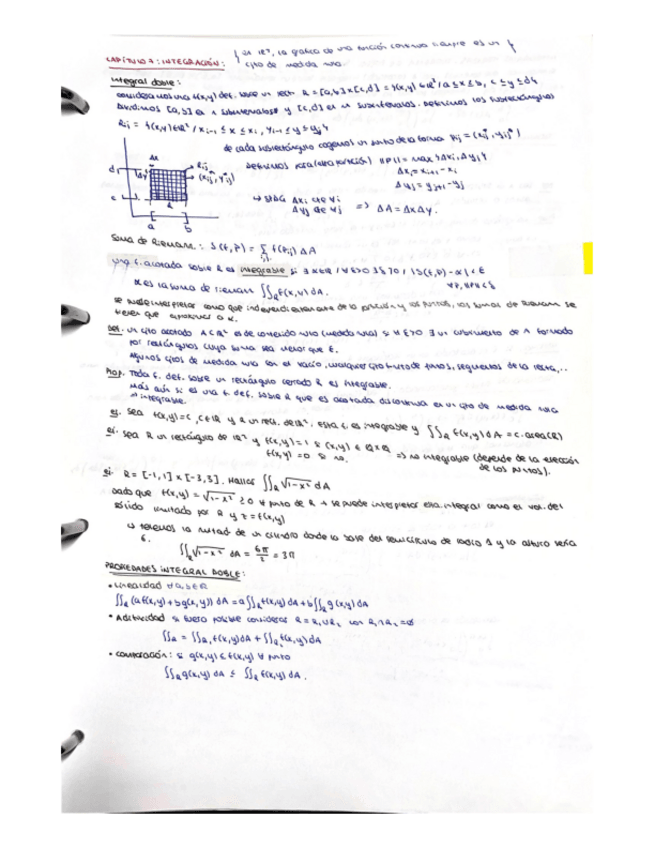 CAPÍTULO 7: INTEGRACIÓN: { en R², la gráfica de una función continua siempre es un }
cjto de medida nula.
Integral doble:
consideramos una f(x,y) def. sobre un rect. R = [a,b]x[c,d] = {(x,y) ∈ R² / a ≤ x ≤ b, c ≤ y ≤ d}
Dividimos [a,b] en n subintervalos y [c,d] en m subintervalos. Definimos los subrectángulos
Rij = {(x,y) ∈ R² / xi-1 ≤ x ≤ xi, yi-1 ≤ y ≤ yj}
de cada subrectángulo cogemos un punto de la forma Pij = (xij*, yij*)
Definimos para (una partición) ||P|| = max {Δxi, Δyj}
Δxi = xi+1 - xi
Δyj = yj+1 - yj
Δx
Δy
Rij
(xij*, yij*)
d
c
R
a b
Δxi cte ∀i
Δyj cte ∀j => ΔA = Δx Δy.
Suma de Riemann: S(f,P) = Σ i,j f(Pij) ΔA
una f. acotada sobre R es integrable si ∃ α ∈ R / ∀ ε>0 ∃ δ>0 / |S(f,P) - α| < ε
∀P, ||P|| < δ
α es la suma de Riemann ∬R f(x,y) dA.
se puede interpretar como que independientemente de la partición y los puntos, las sumas de Riemann se
tienen que aproximar a α.
Def. un cjto acotado A ⊂ R² es de contenido nulo (medida nula) si ∀ ε>0 ∃ un cubrimiento de A formado
por rectángulos cuya suma sea menor que ε.
Algunos cjtos de medida nula son el vacío, cualquier cjto finito de puntos, segmentos de la recta,...
Prop. Toda f. def. sobre un rectángulo cerrado R es integrable.
Más aún si es una f. def. sobre R que es acotada discontinua en un cjto de medida nula
→ integrable.
ej. Sea f(x,y) = c, c∈R y R un rect. de R². Esta f. es integrable y ∬R f(x,y) dA = c·area(R)
ej. Sea R un rectángulo de R² y f(x,y) = 1 si (x,y) ∈ QxQ
f(x,y) = 0 si no. => no integrable (depende de la elección
de los puntos).
ej. R = [-1,1] x [-3,3]. Hallar ∬R √1-x² dA
Dado que f(x,y) = √1-x² ≥ 0 ∀ punto de R → se puede interpretar esta integral como el vol. del
sólido limitado por R y z = f(x,y)
↪ tenemos la mitad de un cilindro donde la base del semicírculo de radio 1 y la altura sería
6.
∬R √1-x² dA = 6π/2 = 3π
PROPIEDADES INTEGRAL DOBLE:
• Linealidad ∀a,b∈R
∬R (a f(x,y) + b g(x,y)) dA = a ∬R f(x,y) dA + b ∬R g(x,y) dA
• Aditividad si fuera posible considerar R = R1 ∪ R2 con R1 ∩ R2 = ∅
∬R = ∬R1 f(x,y) dA + ∬R2 f(x,y) dA
• Comparación: si g(x,y) ≤ f(x,y) ∀ punto
∬R g(x,y) dA ≤ ∬R f(x,y) dA.